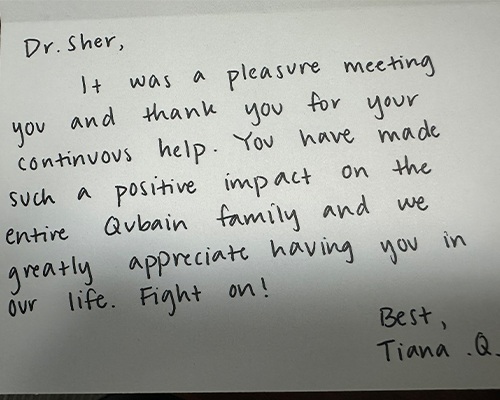 Dr. Sher,
It was a pleasure meeting
you and thank you for your
continuous help. You have made
such a positive impact on the
entire Qubain family and we
greatly appreciate having you in
our life. Fight on!
Best,
Tiana .Q.